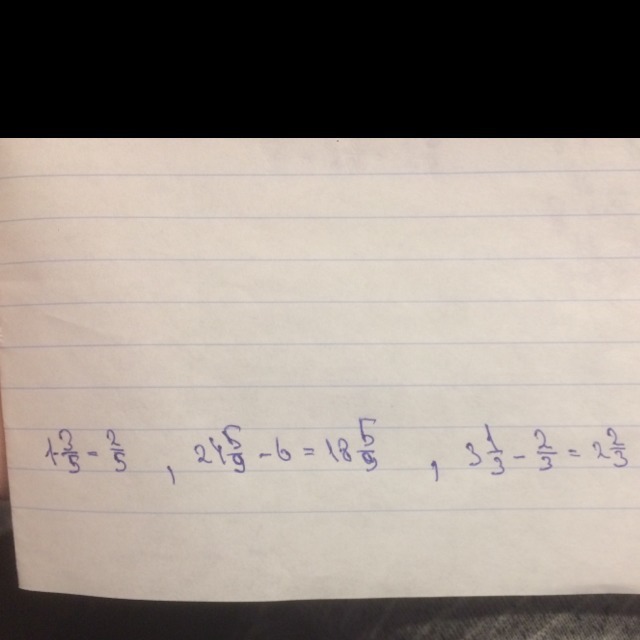 1·2/3 = 2/3 , 24 5/9 - 6 = 18 5/9 , 3 1/3 - 2/3 = 2 2/3